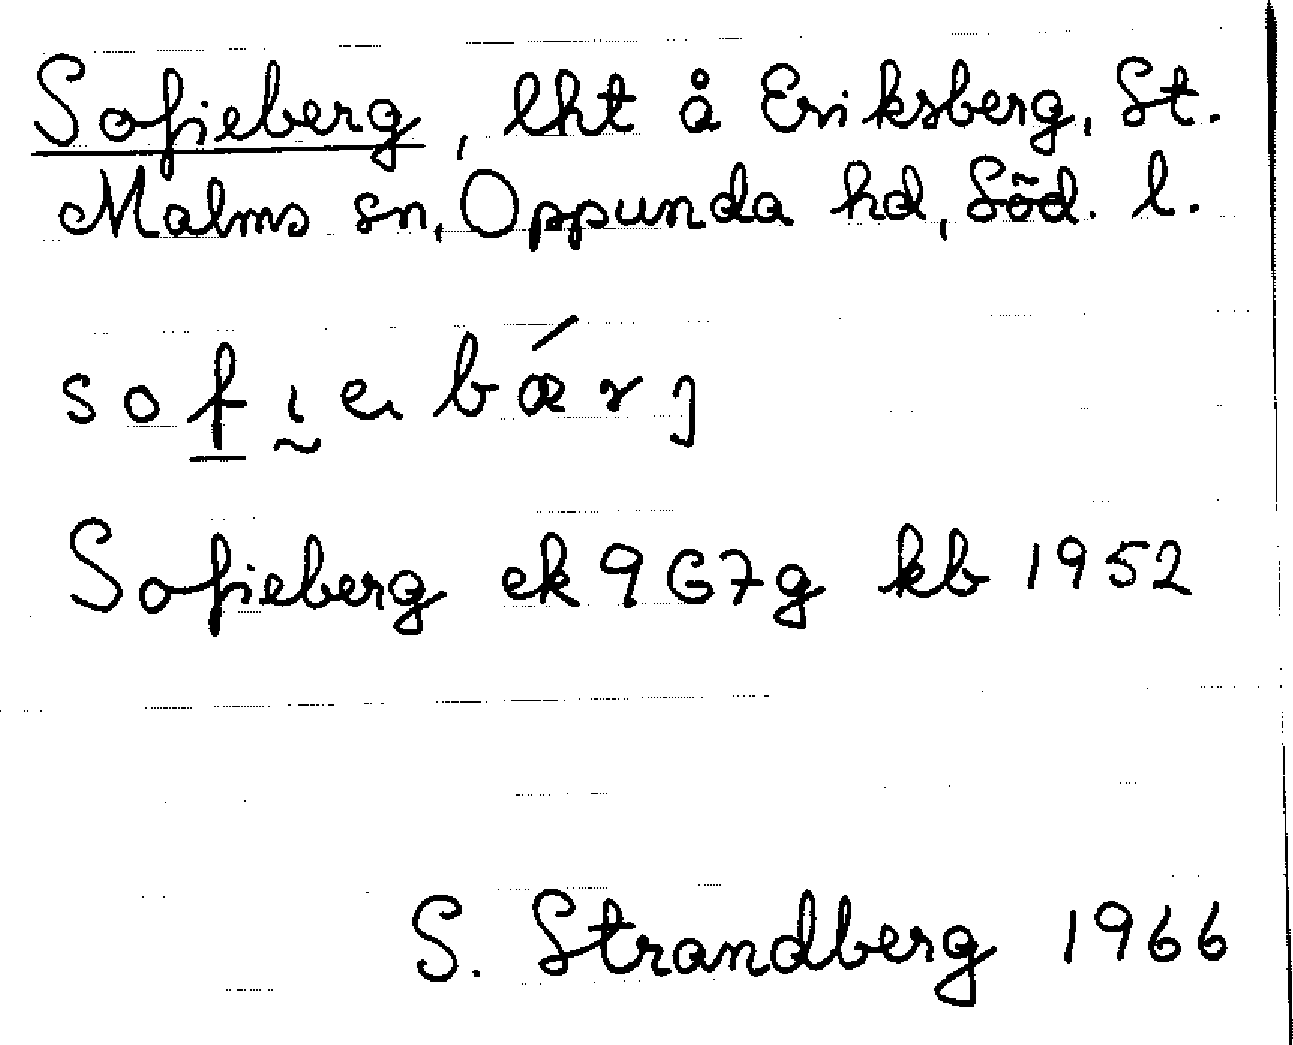 Sofieberg, lht å Eriksberg, St.
Malms sn, Oppunda hd, Söd. l.
sofiebǽrj
Sofieberg ek 9G7g kb 1952
S. Strandberg 1966